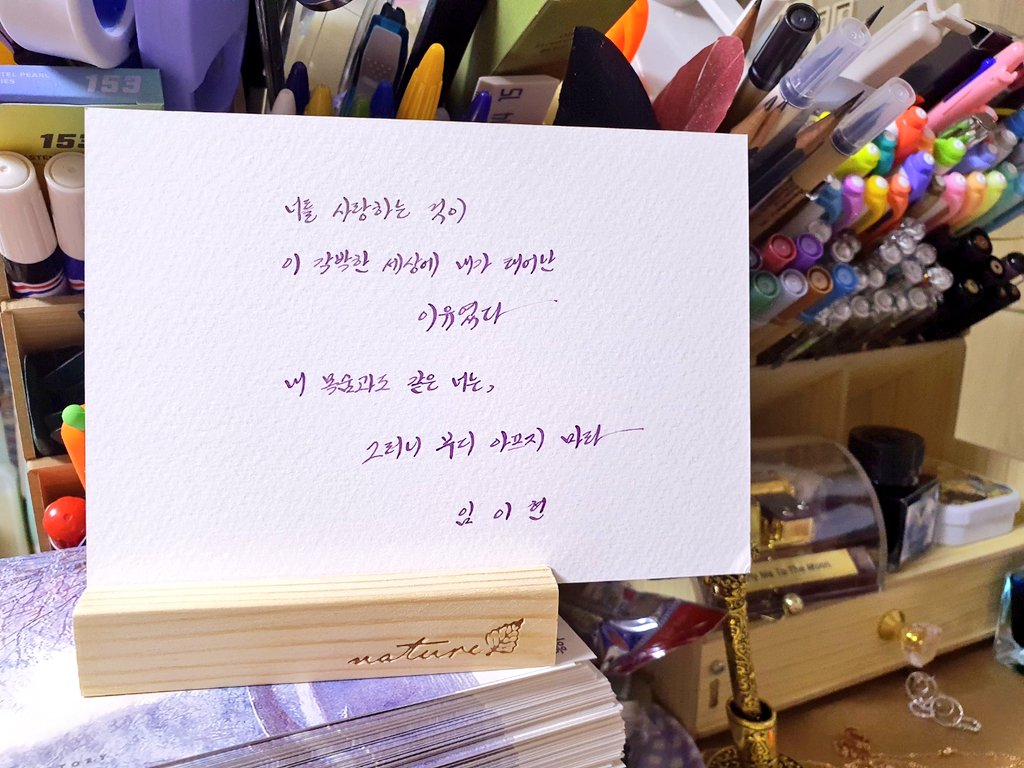 153
153
너를 사랑하는 것이
이 각박한 세상에 내가 태어난
이유였다
내 목숨과도 같은 너는,
그러니 부디 아프지 마라
임 이 헌
nature
Me To The Moon